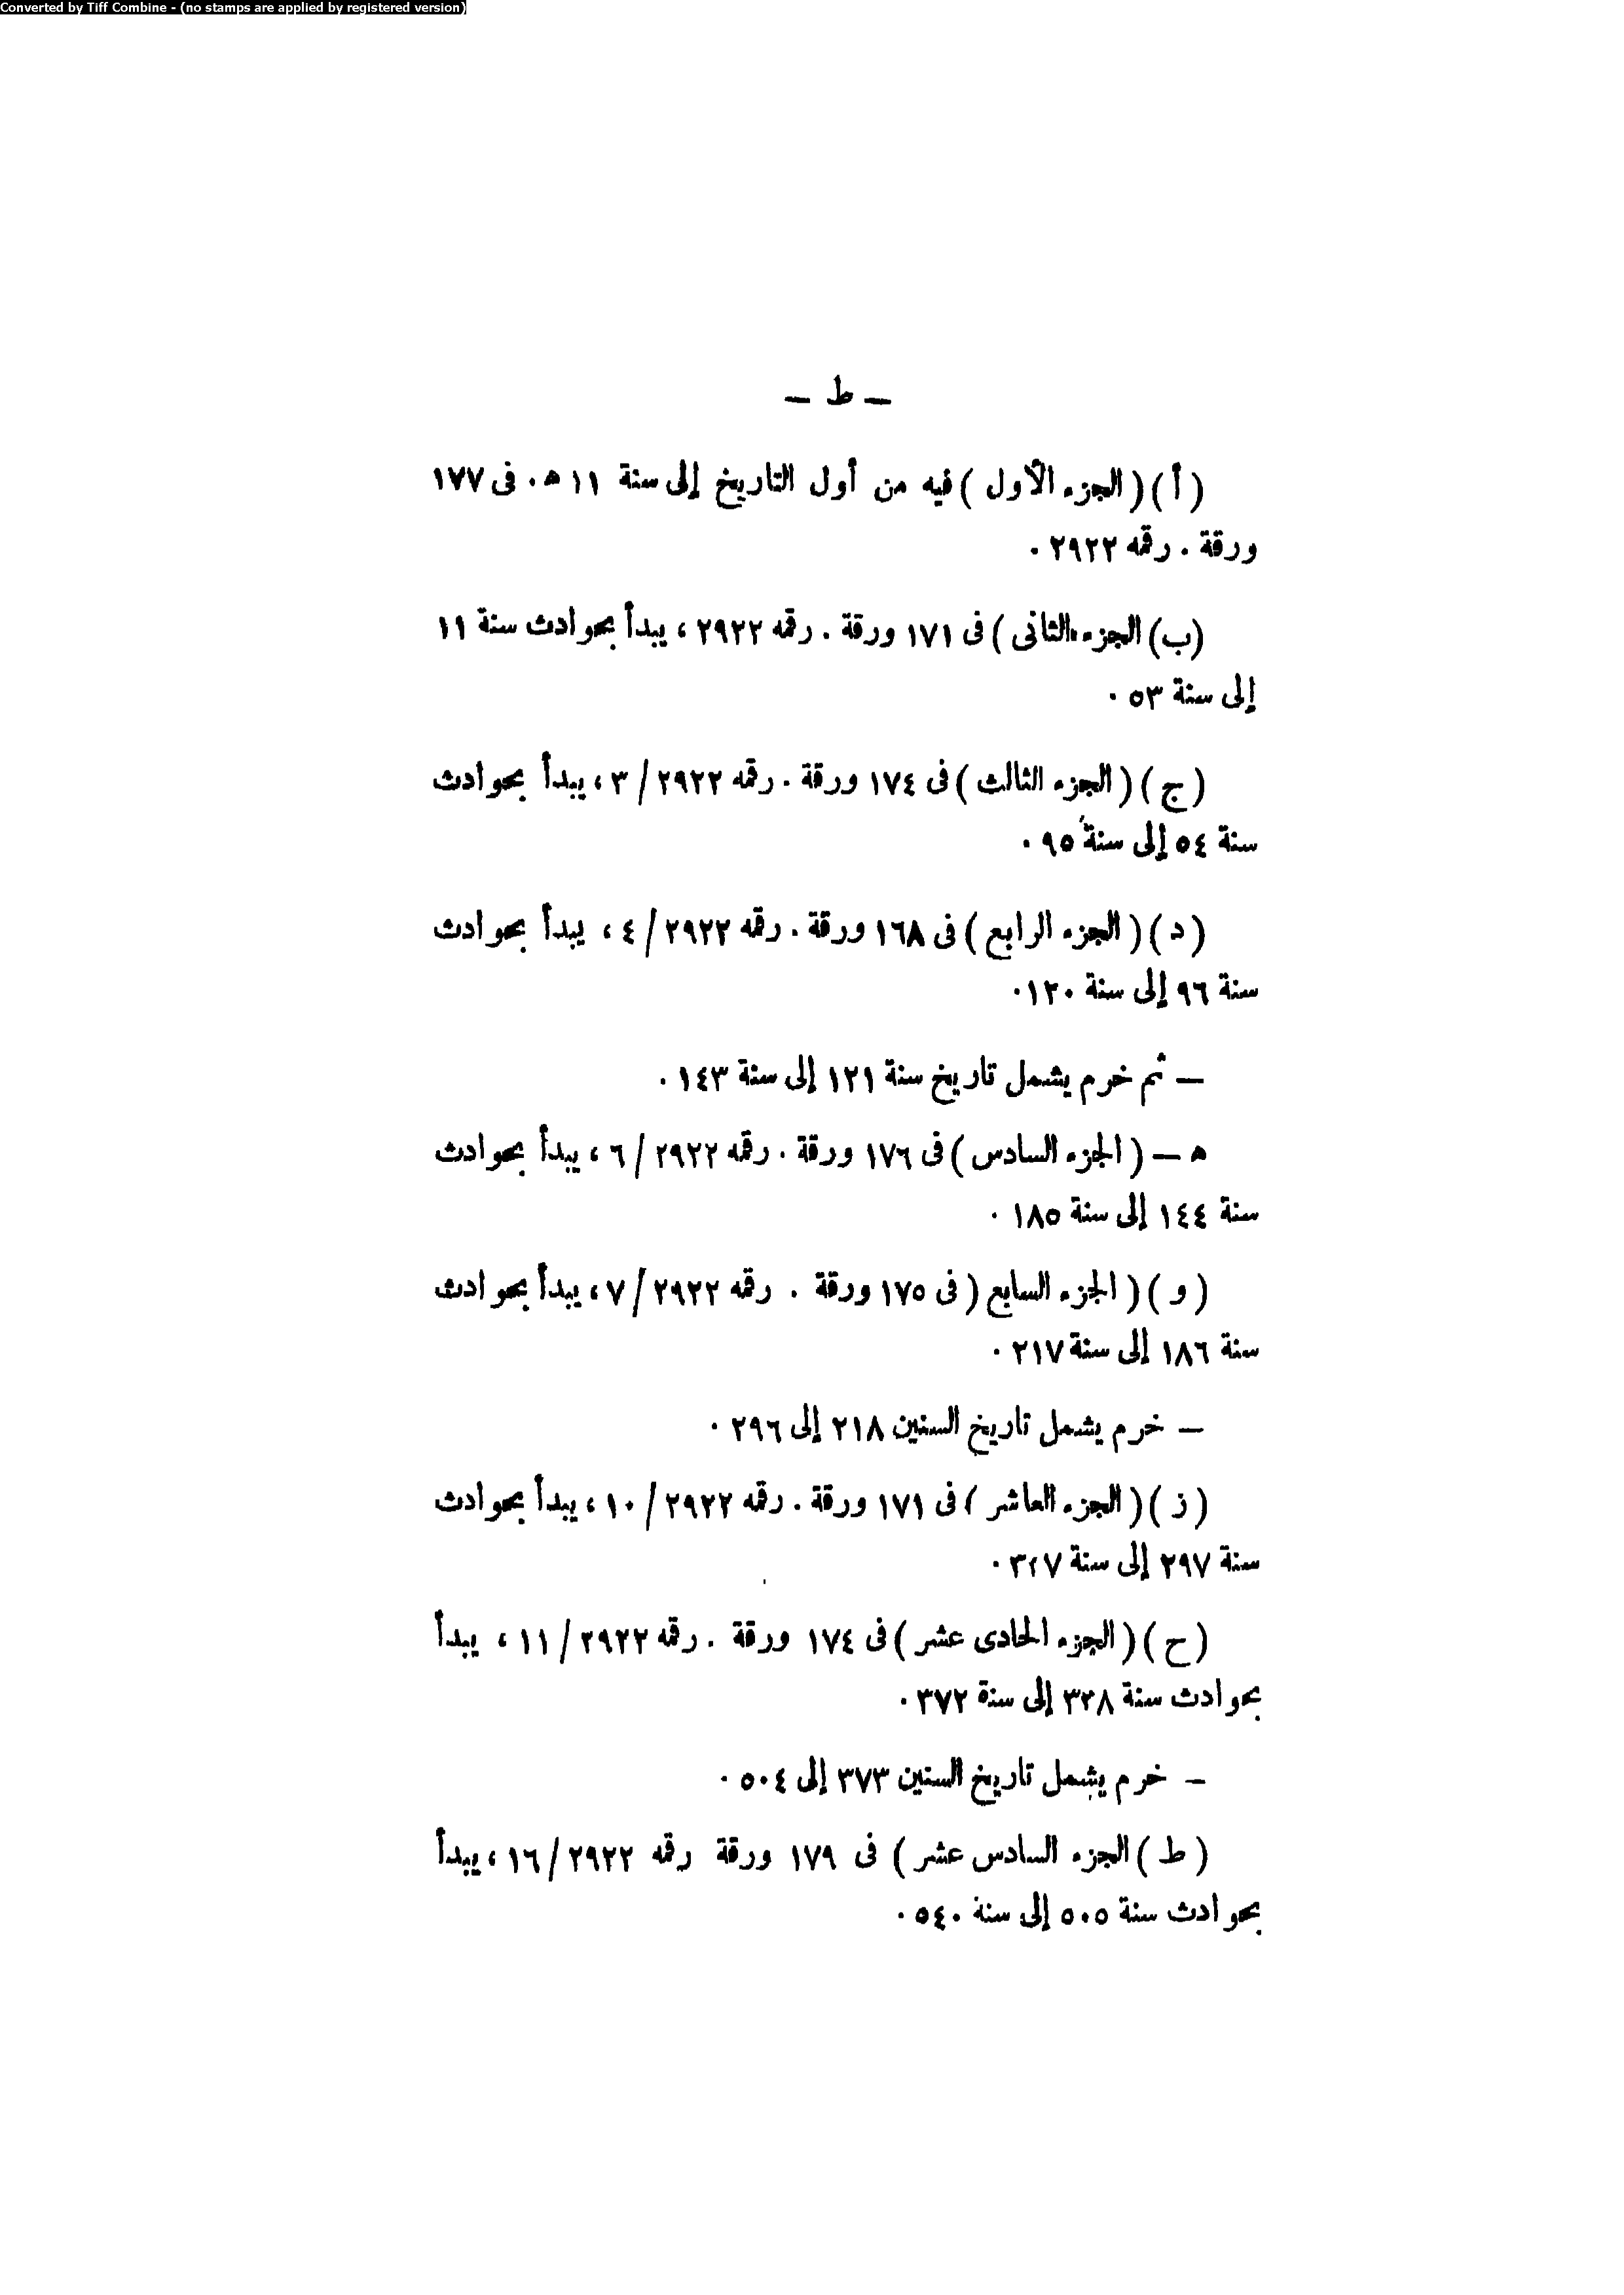 Converted by Tiff Combine - (no stamps are applied by registered version)
— ط —
( أ ) ( الجزء الأول ) فيه من أول التاريخ إلى سنة ١١ هـ . فى ١٧٧
ورقة . رقمه ٢٩٢٢ .
(ب) الجزء الثانى ) فى ١٧١ ورقة . رقمه ٢٩٢٢ ، يبدأ بحوادث سنة ١١
إلى سنة ٥٣ .
( ج ) ( الجزء الثالث ) فى ١٧٤ ورقة . رقمه ٢٩٢٢ / ٣ ، يبدأ بحوادث
سنة ٥٤ إلى سنة ٩٥ .
( د ) ( الجزء الرابع ) فى ١٦٨ ورقة . رقمه ٢٩٢٢ / ٤ ، يبدأ بحوادث
سنة ٩٦ إلى سنة ١٢٠ .
— ثم خرم يشمل تاريخ سنة ١٢١ إلى سنة ١٤٣ .
هـ — ( الجزء السادس ) فى ١٧٦ ورقة . رقمه ٢٩٢٢ / ٦ ، يبدأ بحوادث
سنة ١٤٤ إلى سنة ١٨٥ .
( و ) ( الجزء السابع ( فى ١٧٥ ورقة . رقمه ٢٩٢٢ / ٧ ، يبدأ بحوادث
سنة ١٨٦ إلى سنة ٢١٧ .
— خرم يشمل تاريخ السنين ٢١٨ إلى ٢٩٦ .
( ز ) ( الجزء العاشر ) فى ١٧١ ورقة . رقمه ٢٩٢٢ / ١٠ ، يبدأ بحوادث
سنة ٢٩٧ إلى سنة ٣٢٧ .
( ح ) ( الجزء الحادى عشر ) فى ١٧٤ ورقة . رقمه ٢٩٢٢ / ١١ ، يبدأ
بحوادث سنة ٣٢٨ إلى سنة ٣٧٢ .
— خرم يشمل تاريخ السنين ٣٧٣ إلى ٥٠٤ .
( ط ) الجزء السادس عشر ) فى ١٧٩ ورقة رقمه ٢٩٢٢ / ١٦ ، يبدأ
بحوادث سنة ٥٠٥ إلى سنة ٥٤٠ .